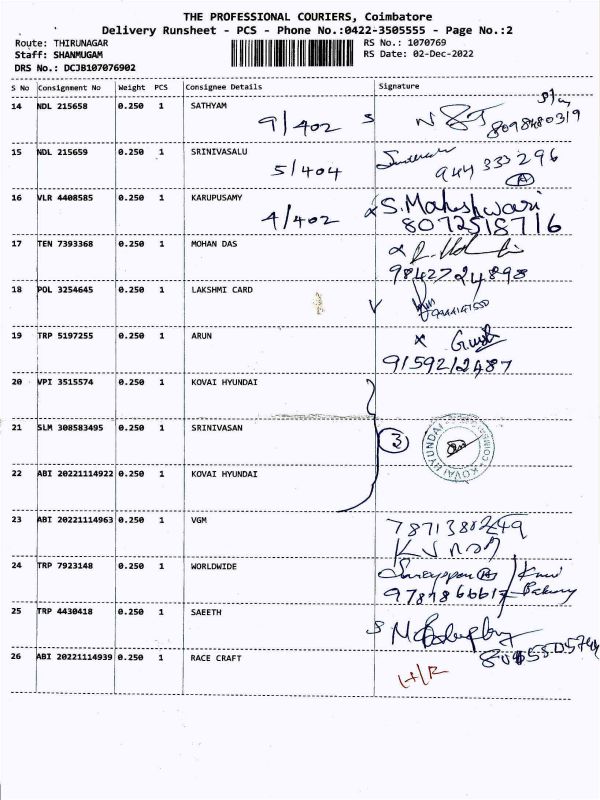 THE PROFESSIONAL COURIERS, Coimbatore
Delivery Runsheet - PCS - Phone No.:0422-3505555 - Page No.:2
Route: THIRUNAGAR RS No.: 1070769
Staff: SHANMUGAM RS Date: 02-Dec-2022
DRS No.: DCJB107076902
S No Consignment No Weight PCS Consignee Details Signature
14 NDL 215658 0.250 1 SATHYAM
9/402 8098480319
15 NDL 215659 0.250 1 SRINIVASALU
5/404 944 333 296
A
16 VLR 4408585 0.250 1 KARUPUSAMY S. Maheshwari
4/402 8072518716
17 TEN 7393368 0.250 1 MOHAN DAS
9842724898
18 POL 3254645 0.250 1 LAKSHMI CARD
19 TRP 5197255 0.250 1 ARUN
9159212487
20 VPI 3515574 0.250 1 KOVAI HYUNDAI
21 SLM 308583495 0.250 1 SRINIVASAN
3 KOVAI HYUNDAI
22 ABI 20221114922 0.250 1 KOVAI HYUNDAI
23 ABI 20221114963 0.250 1 VGM 7871380249
24 TRP 7923148 0.250 1 WORLDWIDE
Bakery
25 TRP 4430418 0.250 1 SAEETH
26 ABI 20221114939 0.250 1 RACE CRAFT
H/R